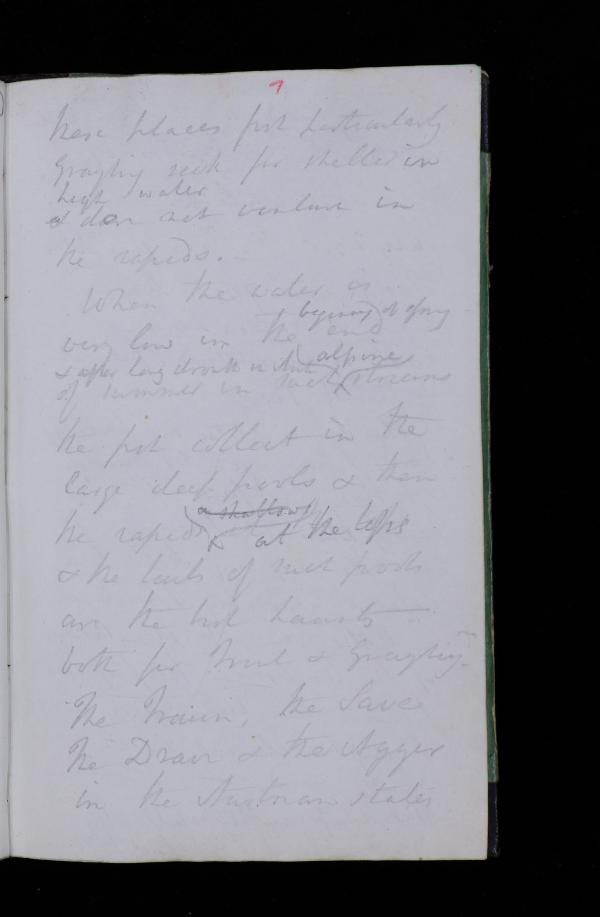 7
these places fish particularly
Grayling seek for shelter in
high water
& do not venture in
the rapids. -
When the water is
beginning of spring
very low in the end
& after long drouth in Autumn alpine
of summer in such streams
the fish collect in the
large deep pools & then
a shallows
the rapids at the tops
& the tails of such pools
are the best haunts
both for Trout & Grayling.
The Traun, the Save
The Drave & the Agger
in the Austrian states